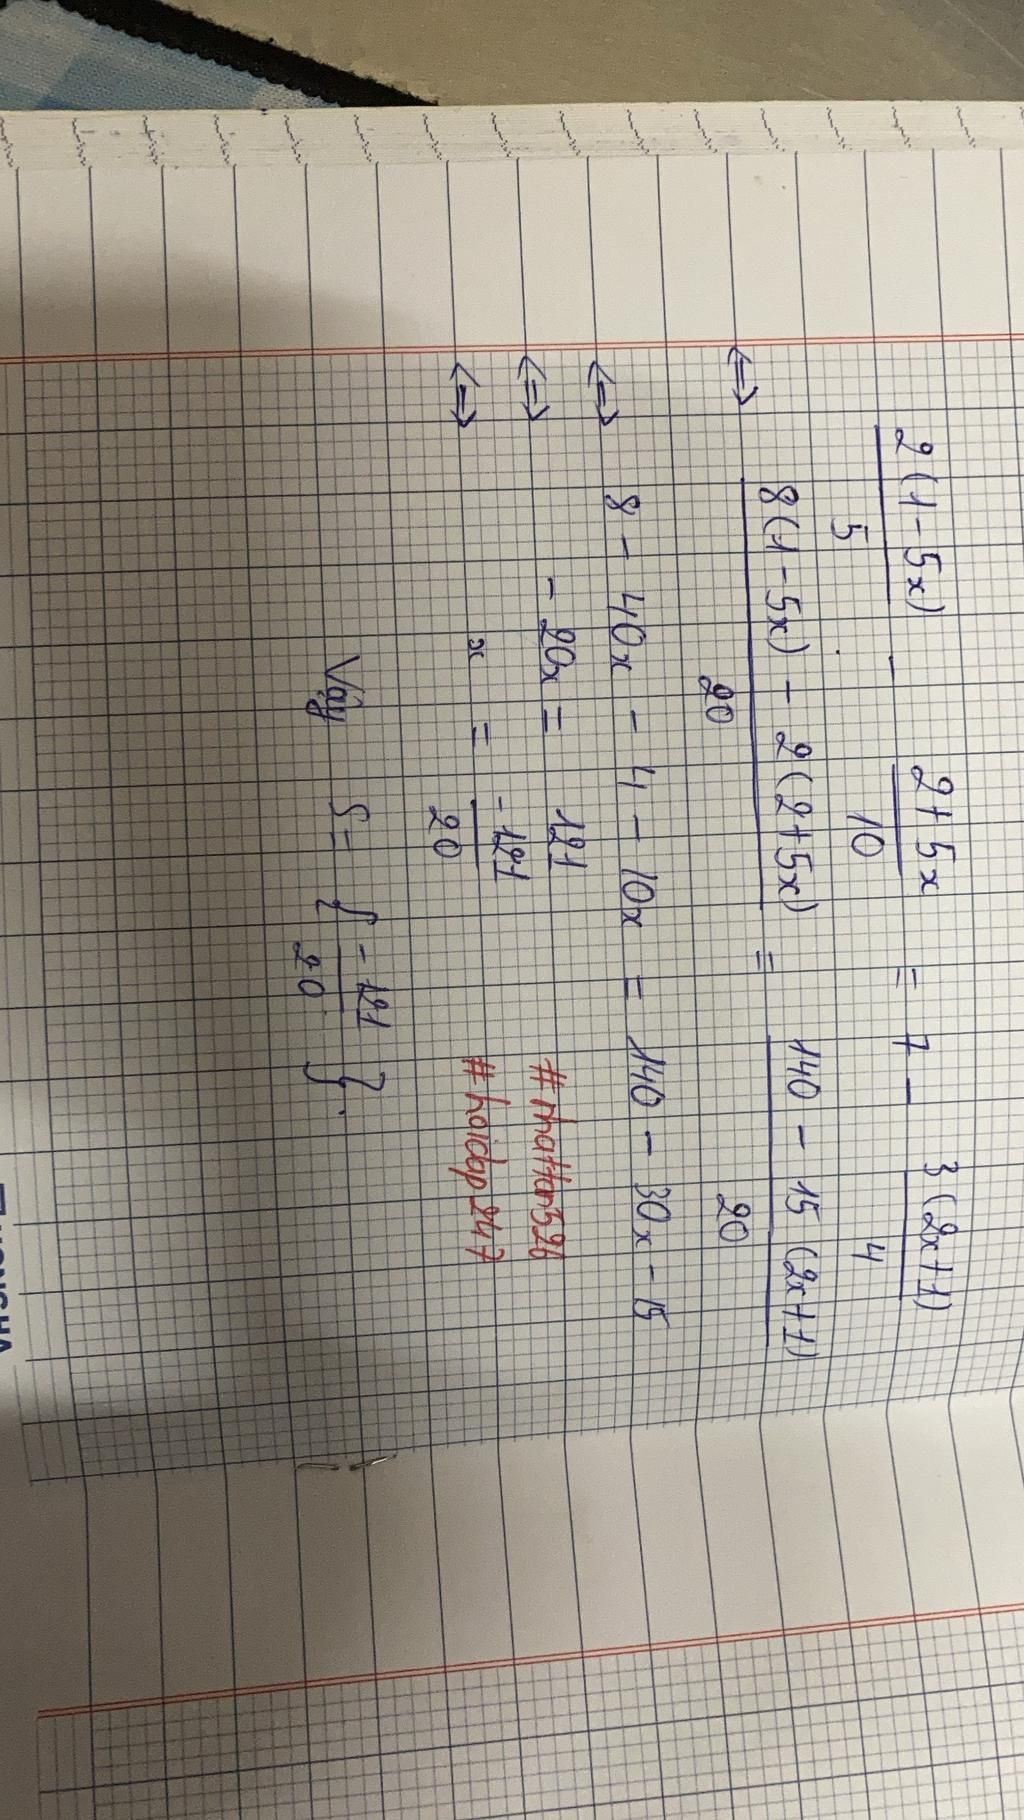 2(1-5x)/5 - 2+5x/10 = 7 - 3(2x+1)/4
⇔ 8(1-5x) - 2(2+5x)/20 = 140 - 15(2x+1)/20
⇔ 8 - 40x - 4 - 10x = 140 - 30x - 15
⇔ - 20x = 121
⇔ x = -121/20
Vậy S = { -121/20 }.
#hoidap247